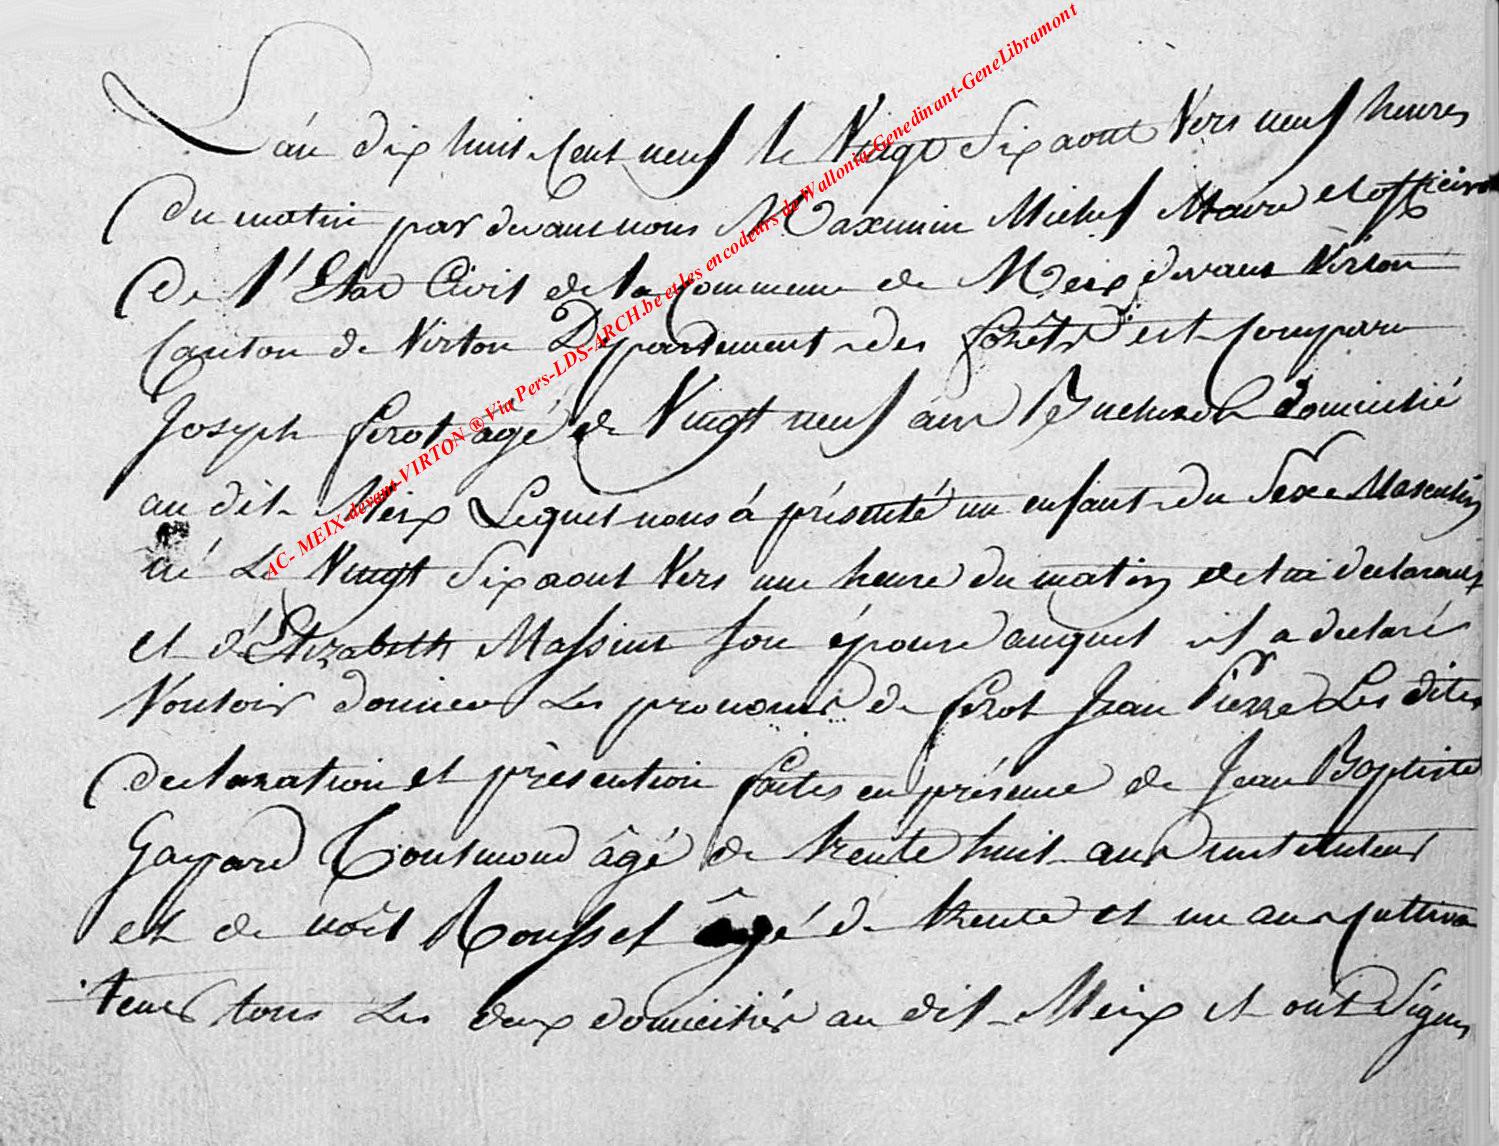 L'an dix huit cent neuf le Vingt Six aout Vers neuf heures
du matin par devant nous Maximin Michel Maire et officier
de l'Etat Civil de la Commune de Meix devant Virton
Canton de Virton Département des forêts est comparu
Joseph ferot âgé de Vingt neuf ans Bucheron domicilié
au dit Meix Lequel nous à présenté un enfant du Sexe Masculin
né Le Vingt Six aout Vers une heure du matin de lui declarant
et d'Elizabeth Massine son épouse auquel il a declaré
Vouloir donner Les prenoms de ferot Jean Pierre Les dites
declaration et présention faites en présence de Jean Baptiste
Gaspard Toutmond âgé de trente huit ans instituteur
et de noêl Rousset âgé de trente et un ans cultiva
teur tous Les deux domiciliés au dit Meix et ont Signes
AC- MEIX-devant-VIRTON ® Via Pers-LDS-ARCH.be et les encodeurs de Wallonia-Genedinant-GeneLibramont